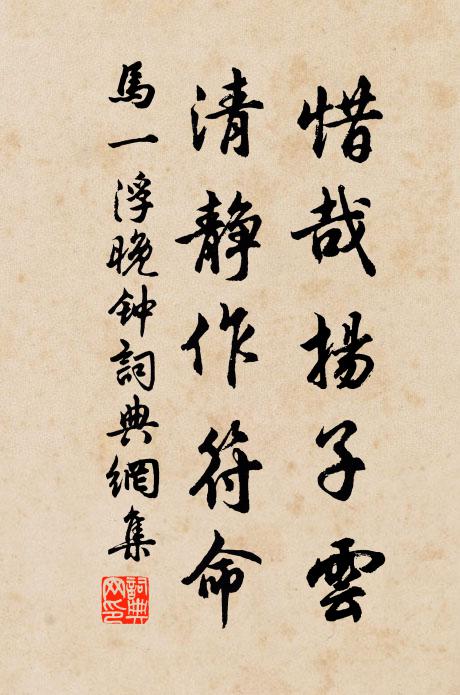 惜哉揚子雲
清靜作符命
馬一浮晚钟詞典網集
詞典网印